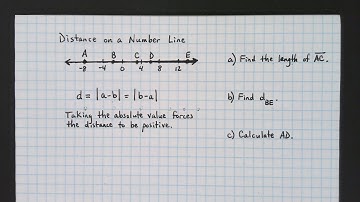 Distance on a Number Line
A B C D E
-8 -4 0 4 8 12
d = |a-b| = |b-a|
Taking the absolute value forces
the distance to be positive.
a) Find the length of AC.
b) Find d_BE.
c) Calculate AD.